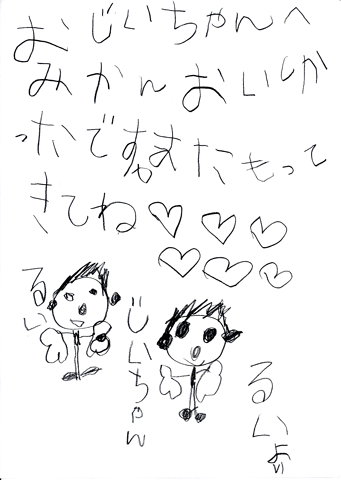 おじいちゃんへ
みかんおいしか
ったですまたもって
きてね♡♡♡
♡♡♡
るい
じいちゃん
るいより